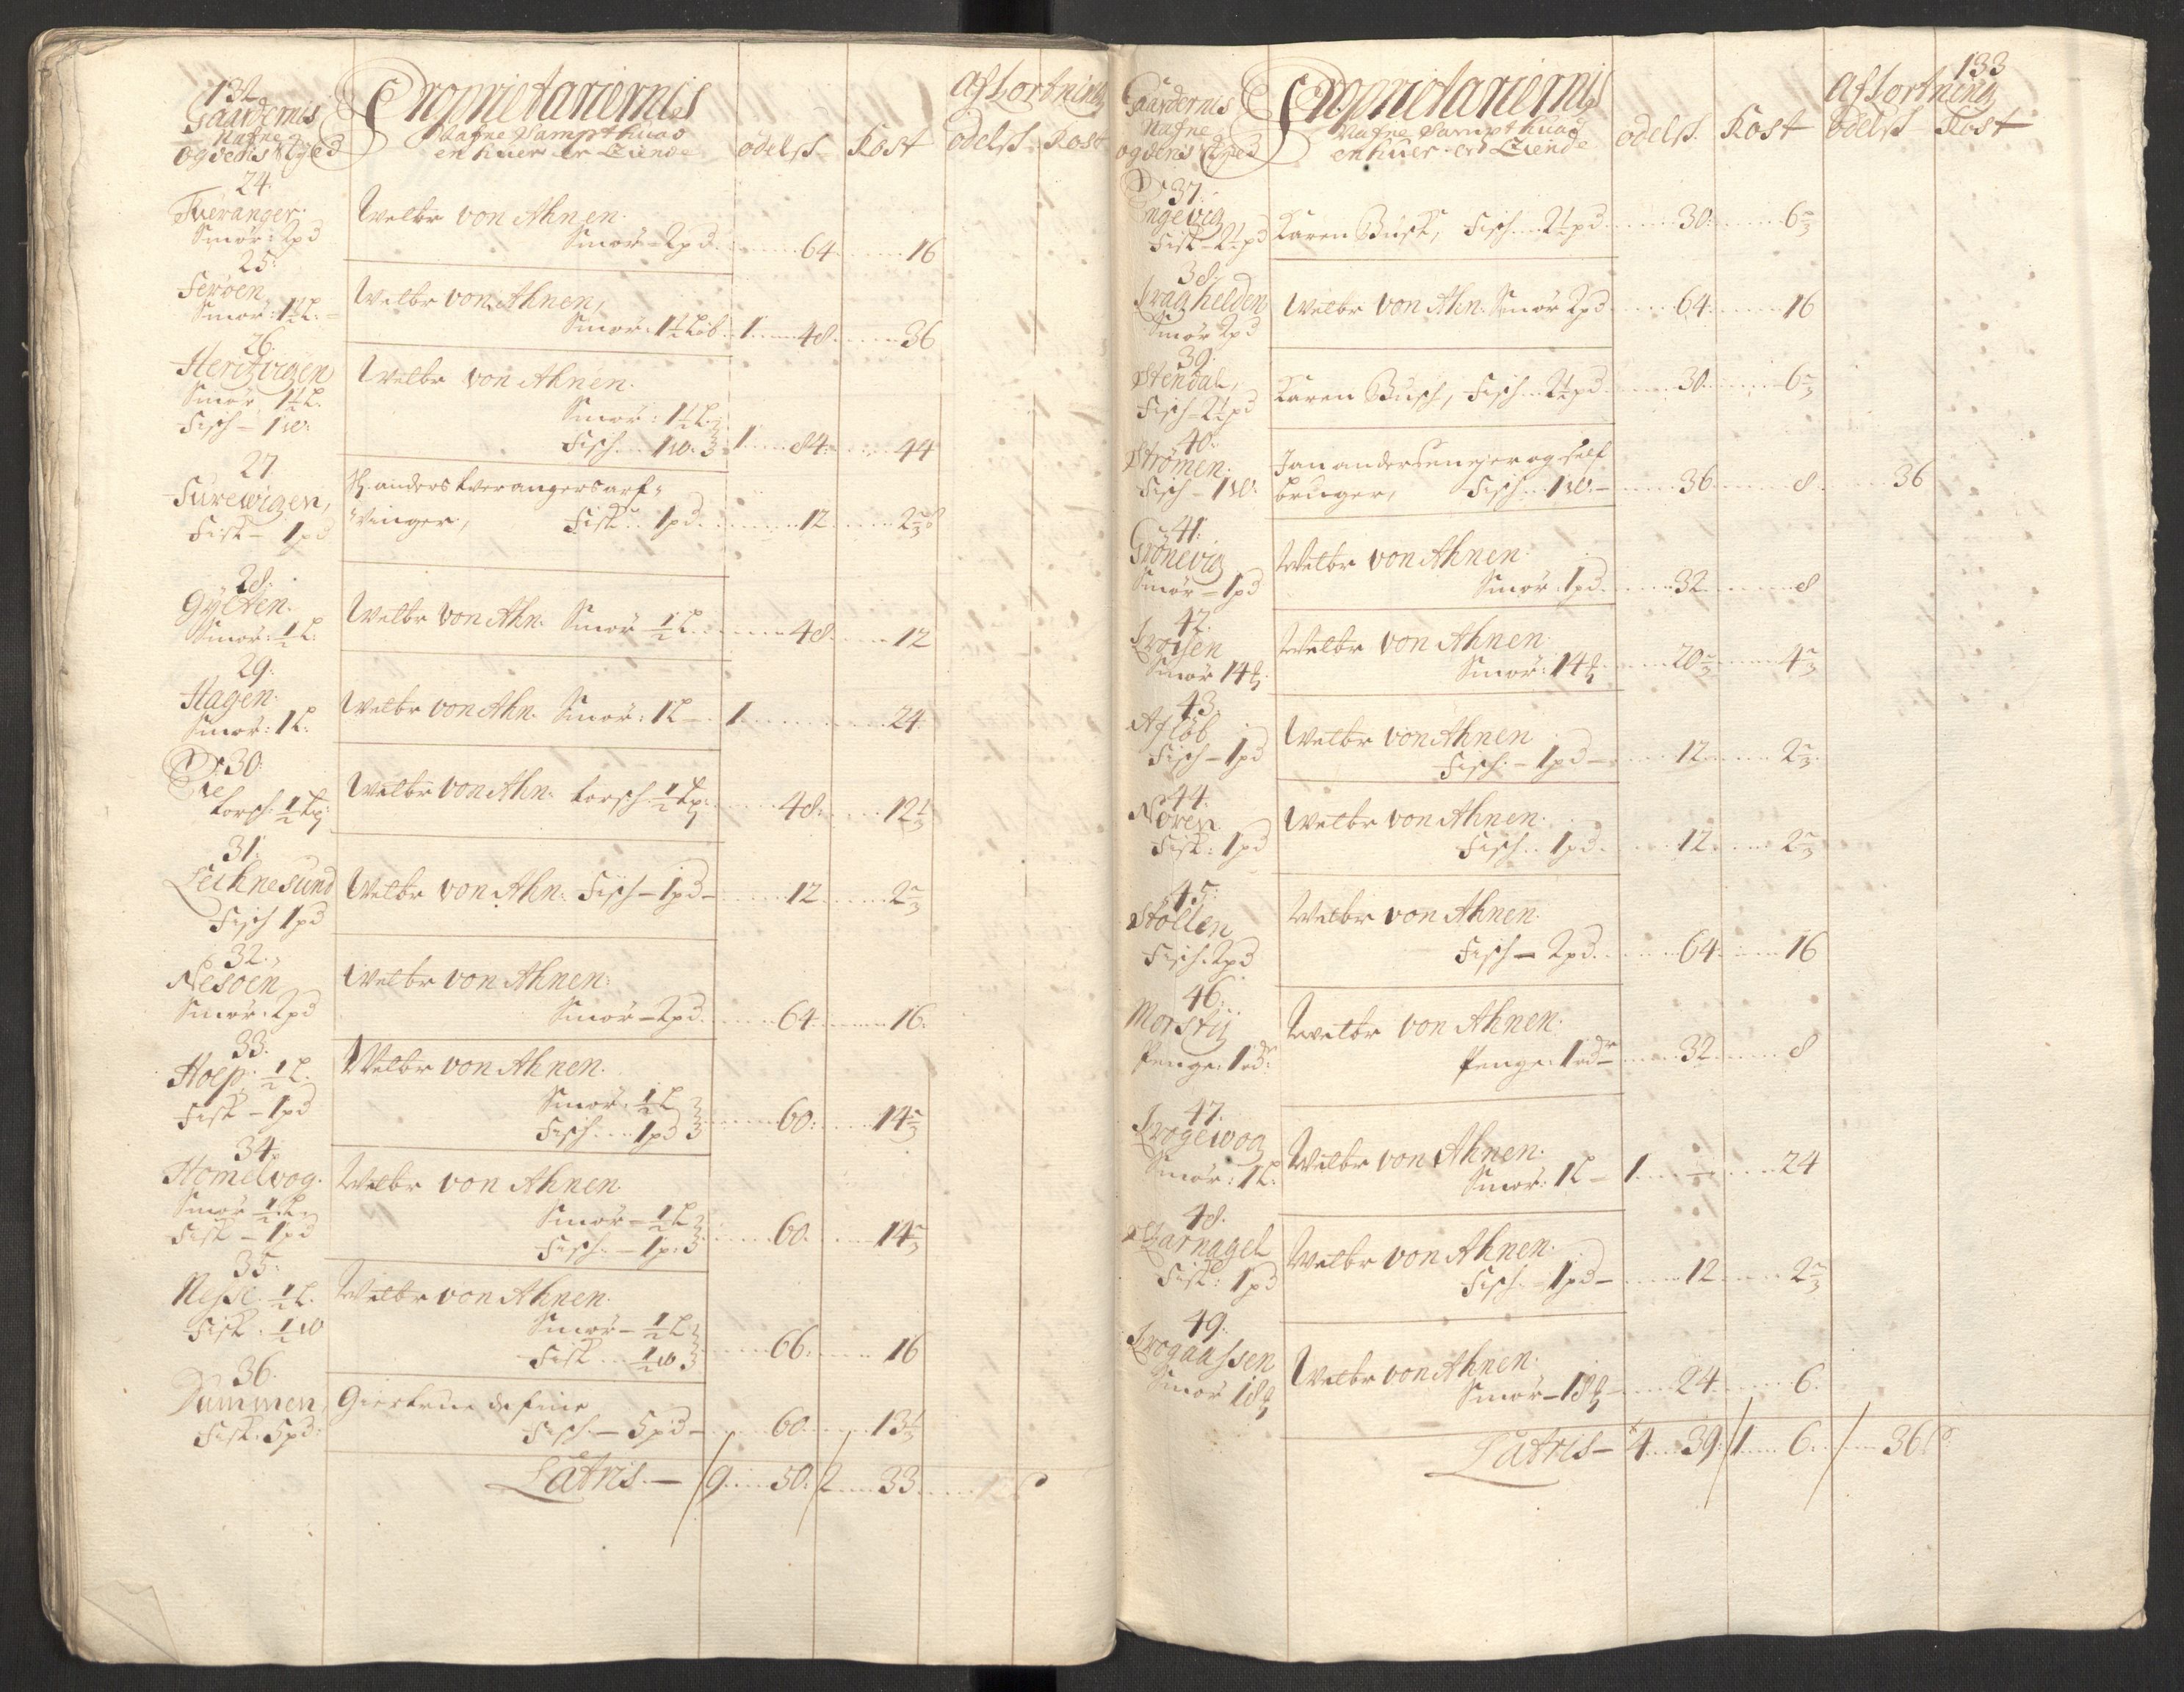 132
Gaardernis
Nafne
og denis skyld
Proprietariernis
Nafne Sampt huad
en huer er Eiende
odelst
Kost
Afkortning
odelst
Kost
24.
Tueranger.
Smör: 2pd
Welbr von Ahnen.
Smör - 2pd. 64. 16
25:
Feröen
Smör: 1½L.
Welbr von Ahnen,
Smör: 1½ Løb 1. 48. 36
26.
Hertzvigen
Smör 1½L.
Fisch - 1w:
Welbr von Ahnen.
Smör: 1½L.
Fisch. 1w. 1. 84. 44
27.
Furewigen,
Fisk - 1pd
H. anders tverangers arf-
vinger, Fisk. 1pd. 12. 2⅔
28.
Gylten.
Smör: ½L.
Welbr von Ahn. Smör ½L. 48. 12
29.
Hagen.
Smör: 1L.
Welbr von Ahn. Smör: 1L - 1. 24.
30.
Ee
torsch ½
Welbr von Ahn: torsch ½ 48: 12⅓
31.
Leihnesund
Fisch 1pd
Welbr von Ahn: Fisch - 1pd - 12. 2⅔
32.
Nesöen
Smör: 2pd
Welbr von Ahnen:
Smör - 2pd. 64. 16.
33.
Hoep: ½L.
Fisk - 1pd
Welbr von Ahnen.
Smör: ½L
Fisch. 1pd 60: 14⅔
34.
Homelvog.
Smör ½L.
Fisk - 1pd
Welbr von Ahnen.
Smör - ½L
Fisch. - 1p: 60. 14⅔
35.
Nesse ½L.
Fisk. ½w
Welbr von Ahnen.
Smör - ½L
Fisk. ½w 66. 16
36.
Dummen,
Fisk. 5pd:
Giertrue de fine
Fisch. - 5pd - 60. 13⅓
Latris. - 9. 50: 2. 33.
133
Gaardernis
Nafne
og denis skyld
Proprietariernis
Nafne Sampt huad
en huer er Eiende
odelst.
Kost
Afkortning
odelst
Kost
37.
Engevig
Fisk - 2½pd
Karen Busk, Fisch. 2½pd. 30. 6⅔
38.
Kraghelden
Smör 2pd
Welbr von Ahn. Smör 2pd. 64. 16
39.
Stendal,
Fisch - 2½pd
Karen Busch, Fisch. 2½pd. 30. 6⅔
40.
Strömen.
Fisch - 1w.
Jan andersen ejer og self
bruger, Fisch. 1w. - 36. 8. 36
41.
Grönevig
Smör - 1pd
Welbr von Ahnen.
Smör. 1pd. 32. 8
42.
Smör 14
Welbr von Ahnen.
Smör: 14 20⅔ 4⅔
43.
Aflöb
Fisch - 1pd
Welbr von Ahnen
Fisch. - 1pd - 12. 2⅔.
44.
Nören
Fisk: 1pd
Welbr von Ahnen.
Fisch. 1pd. 12. 2⅔
45.
Stollen
Fisch. 2pd
Welbr von Ahnen.
Fisch - 2pd. 64. 16
46.
Morsty
Penge. 1ort
Welbr von Ahnen.
Penge. 1ort 32. 8
47.
Krogewog
Smör: 1L.
Welbr von Ahnen.
Smör: 1L - 1. 24
48.
Skarnagel
Fisk: 1pd
Welbr von Ahnen.
Fisch. - 1pd - 12. 2⅔
49.
Krogaassen
Smör 18
Welbr von Ahnen.
Smör - 18 24. 6.
Latris - 4. 39. 1. 6. 36